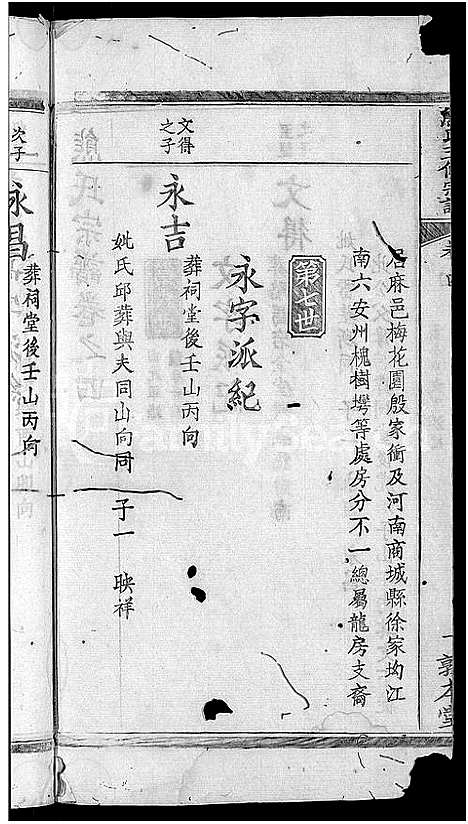 熊氏三修宗譜
卷四
一 敦本堂
居麻邑梅花園殷家衝及河南商城縣徐家坳江
南六安州槐樹塆等處房分不一總屬龍房支裔
第七世
永字派紀
文得之子
永吉
葬祠堂後壬山丙向
妣氏邱葬與夫同山向同 子一 映祥
次子
永昌
葬祠堂後壬山丙向